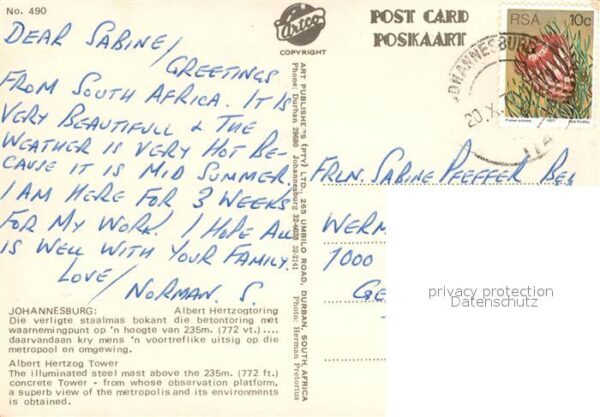 No. 490
Artco
COPYRIGHT
POST CARD
POSKAART
RSA 10c
JOHANNESBURG
20.X
1977
DEAR SABINE/
GREETINGS
FROM SOUTH AFRICA. IT IS
VERY BEAUTIFULL & THE
WEATHER IS VERY HOT BE-
CAUSE IT IS MID SUMMER.
I AM HERE FOR 3 WEEKS
FOR MY WORK. I HOPE ALL
IS WELL WITH YOUR FAMILY.
LOVE/
NORMAN. S.
ART PUBLISHERS (PTY) LTD., 265 UMBILO ROAD, DURBAN, SOUTH AFRICA
Phone: Durban 29680 Johannesburg 32-6038 33-2141 Photo: Herman Pretorius
FRLN. SABINE PFEFFER BEI
WERM
1000
GE
privacy protection
Datenschutz
JOHANNESBURG: Albert Hertzogtoring
Die verligte staalmas bokant die betontoring met
waarnemingpunt op 'n hoogte van 235m. (772 vt.) ....
daarvandaan kry mens 'n voortreflike uitsig op die
metropool en omgewing.
Albert Hertzog Tower
The illuminated steel mast above the 235m. (772 ft.)
concrete Tower - from whose observation platform,
a superb view of the metropolis and its environments
is obtained.